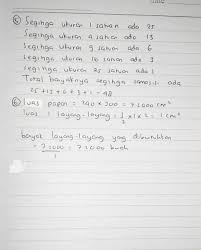 Segihga ukuran 1 satuan ada 25
Segihga ukuran 4 satuan ada 13
Segihga ukuran 9 satuan ada 6
Segihga ukuran 16 satuan ada 3
Segihga ukuran 25 satuan ada 1
Total banyaknya segihga ada
25 + 13 + 6 + 3 + 1 = 48
Luas papan = 240 x 300 = 72000 cm²
Luas 1 layang-layang = 1/2 x 1 x 2 = 1 cm²
banyak layang-layang yang dibutuhkan
= 72000 = 72000 buah
1